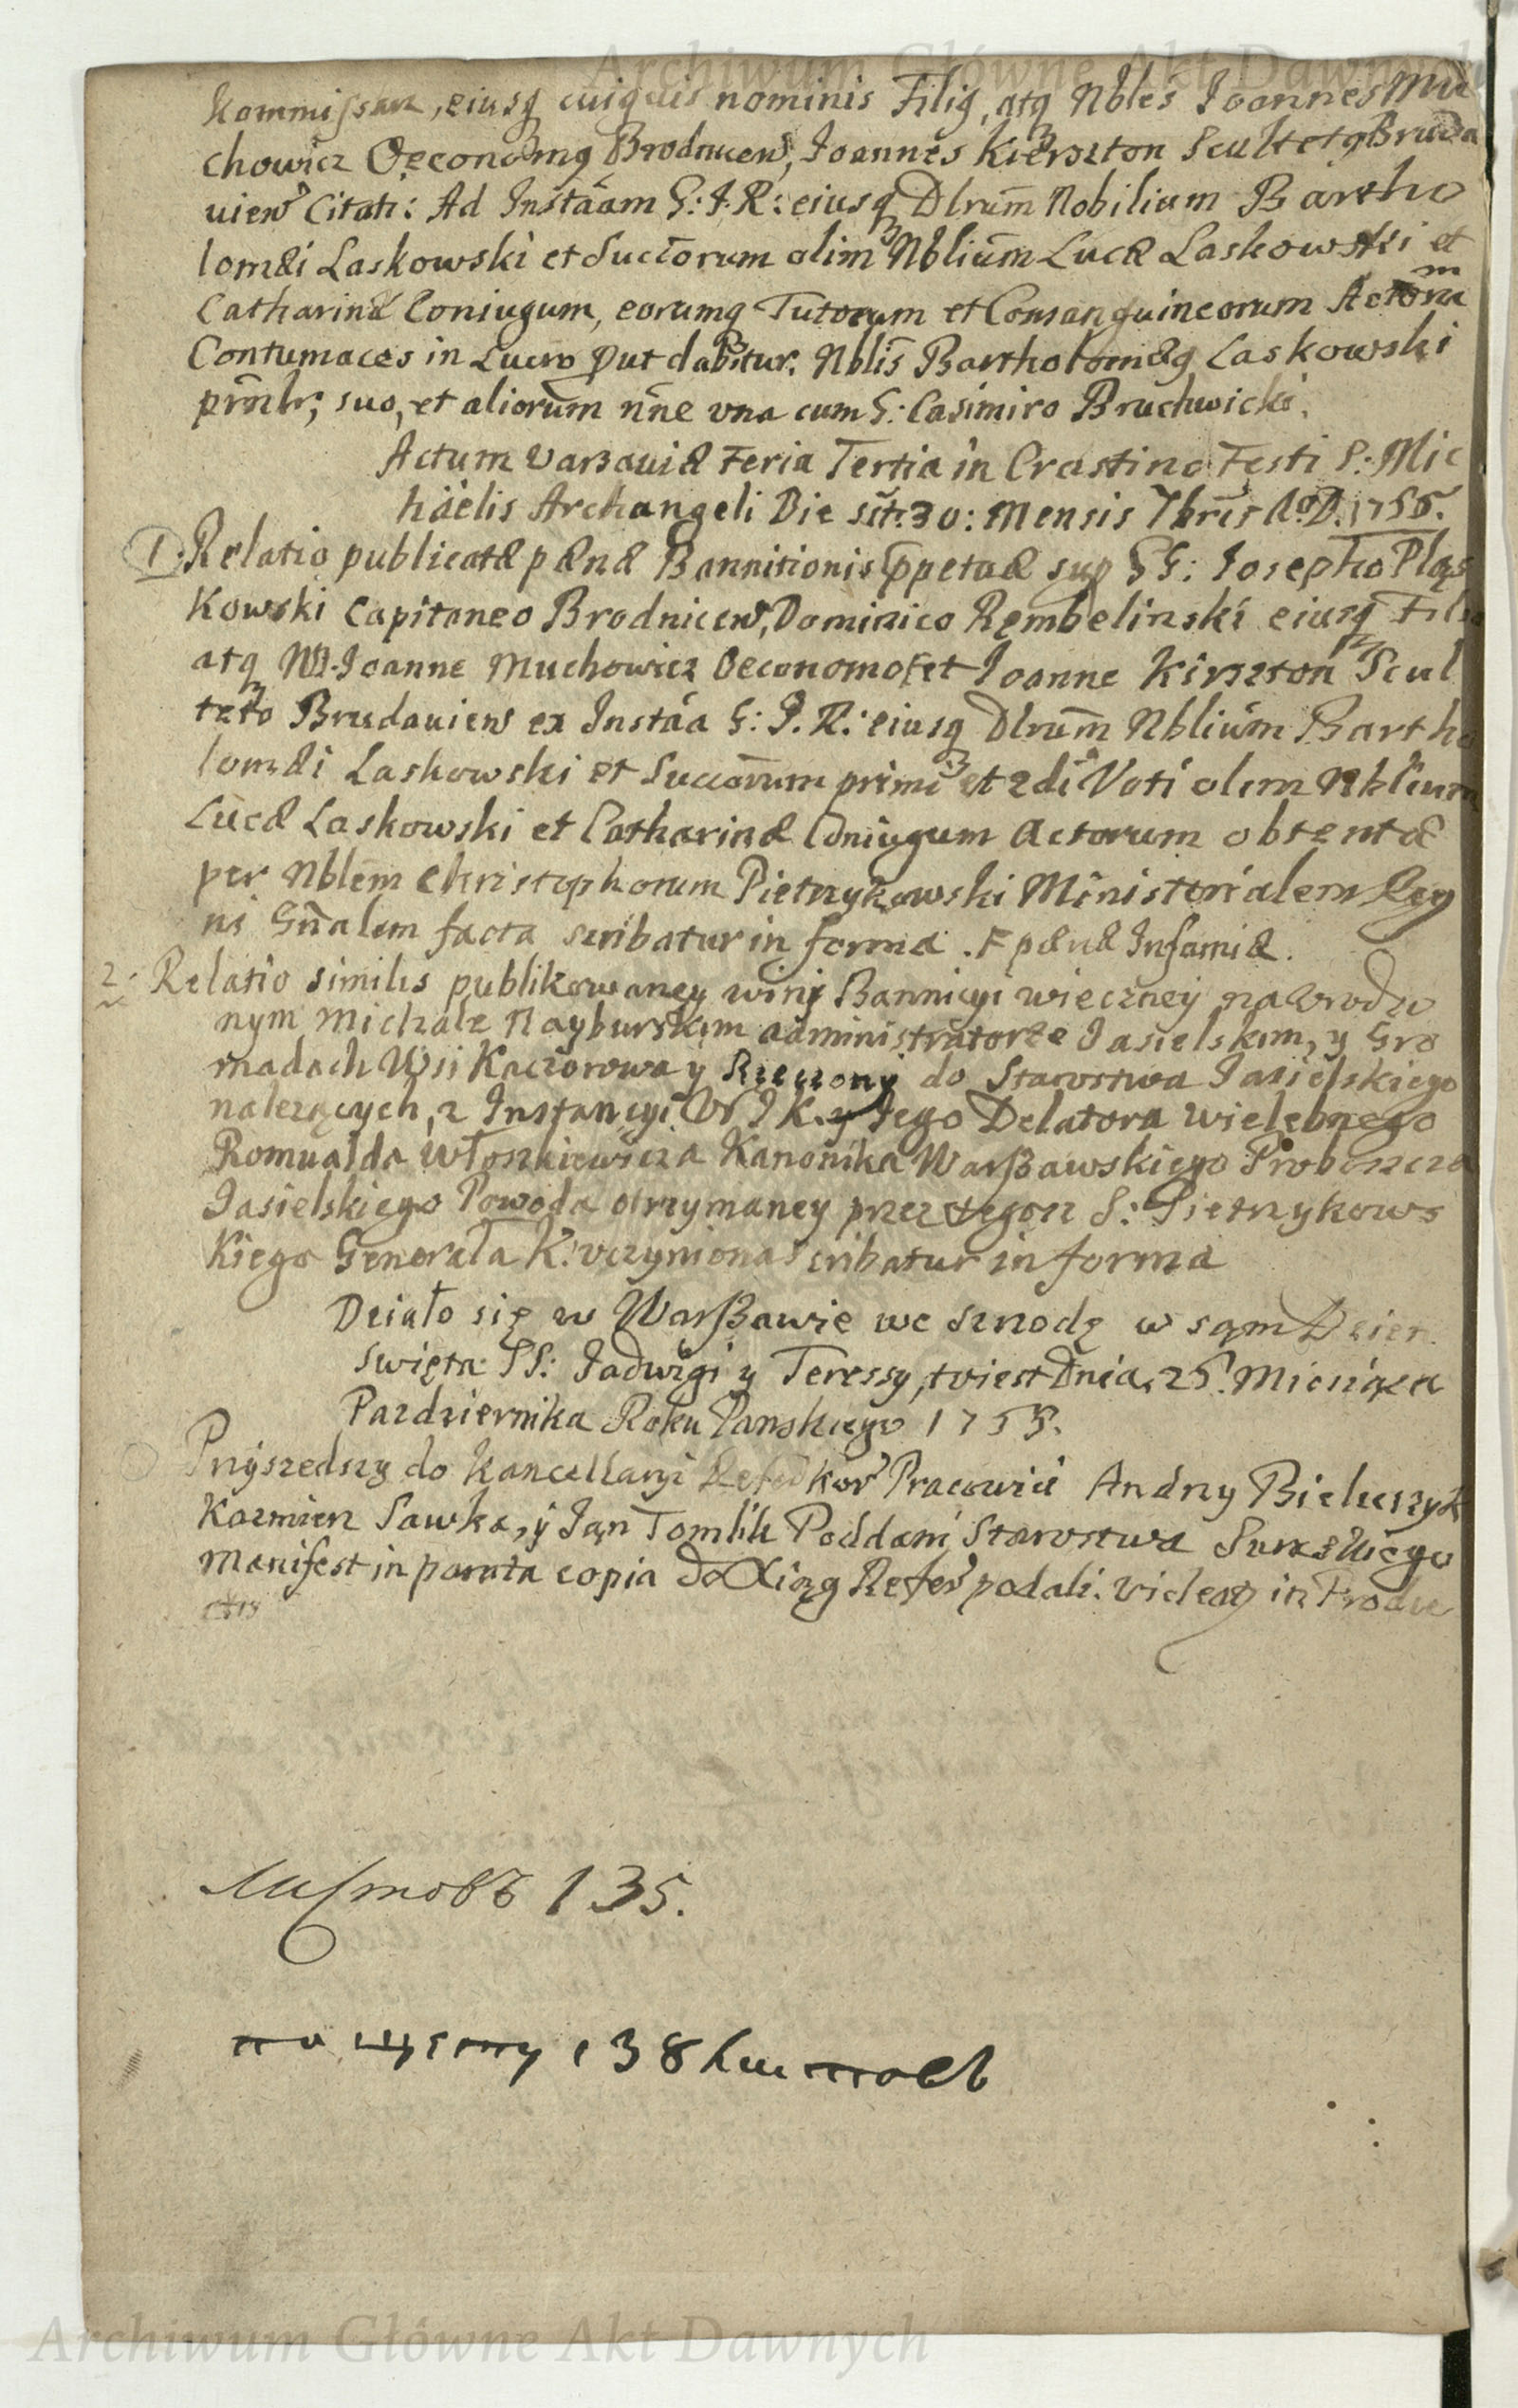 Archiwum Główne Akt Dawnych
Kommissarz, eiusq cuiquis nominis Filig, atq Nbles Joannes Mu
chowicz Oeconomg Brodnicen, Joannes Kierszton Scultetg Bruda
uien Citati: Ad Instãam G: I: R: eiusq Dlrum Nobilium Bartho
lomæi Laskowski et Succorum olim Nblium Lucæ Laskowski et
Catharinæ Coniugum, eorumq Tutorum et Consanguineorum Actorum
Contumaces in Lucro Put dabitur. Nblis Bartholomæg Laskowski
prñlr; suo, et aliorum nñe vna cum G: Casimiro Bruchwicki.
Actum Varsauiæ Feria Tertia in Crastino Festi S: Mic
häelis Archangeli Die scit: 30: Mensis 7bris A. D. 1755.
1. Relatio publicatæ pænæ Bannitionis ppetuæ sup GG: Josepho Pląs
kowski Capitaneo Brodnicen, Dominico Rembelinski eiusq Filio
atq NN. Joanne Muchowicz Oeconomo et Joanne Kirszton Scul
teto Brudauien ex Instãa G: I. R: eiusq Dlrum Nblium Bartho
lomæi Laskowski et Succorum primi et 2di Voti olim Nblium
Lucæ Laskowski et Catharinæ Coniugum Actorum obtentæ
per Nblem Christophorum Pietrzykowski Ministerialem Reg
ni Gñalem facta scribatur in forma. F pænæ Infamiæ.
2. Relatio similis publikowaney winy Bannicyi wieczney na Urodzo
nym Michale Rayburskim administratorze Jasielskim, y Gro
madach Wsi Kaczorowa y do Starostwa Jasielskiego
nalezących, z Instancyi W I K. y Jego Delatora Wielebnego
Romualda Włoszkiewicza Kanonika Warszawskiego Proboszcza
Jasielskiego Powoda otrzymaney przez tegosz S: Pietrzykows
kiego Generała K: vczyniona scribatur in forma
Działo się w Warszawie we Szrodę w sąm Dzien
Swięta SS: Jadwigi y Teressy, to iest Dnia 15. Miesiąca
Pazdziernika Roku Panskiego 1755.
Przyszedszy do Kancellaryi Refer Kor Pracowici Andrzy Bieluszyk
Kazmierz Sawka, y Jąn Tomlik Poddani Starostwa
Manifest in parata copia do Xiąg Refer podali. Videat in Produ
ctis
Листовъ 135.
138 Листовъ
Archiwum Główne Akt Dawnych